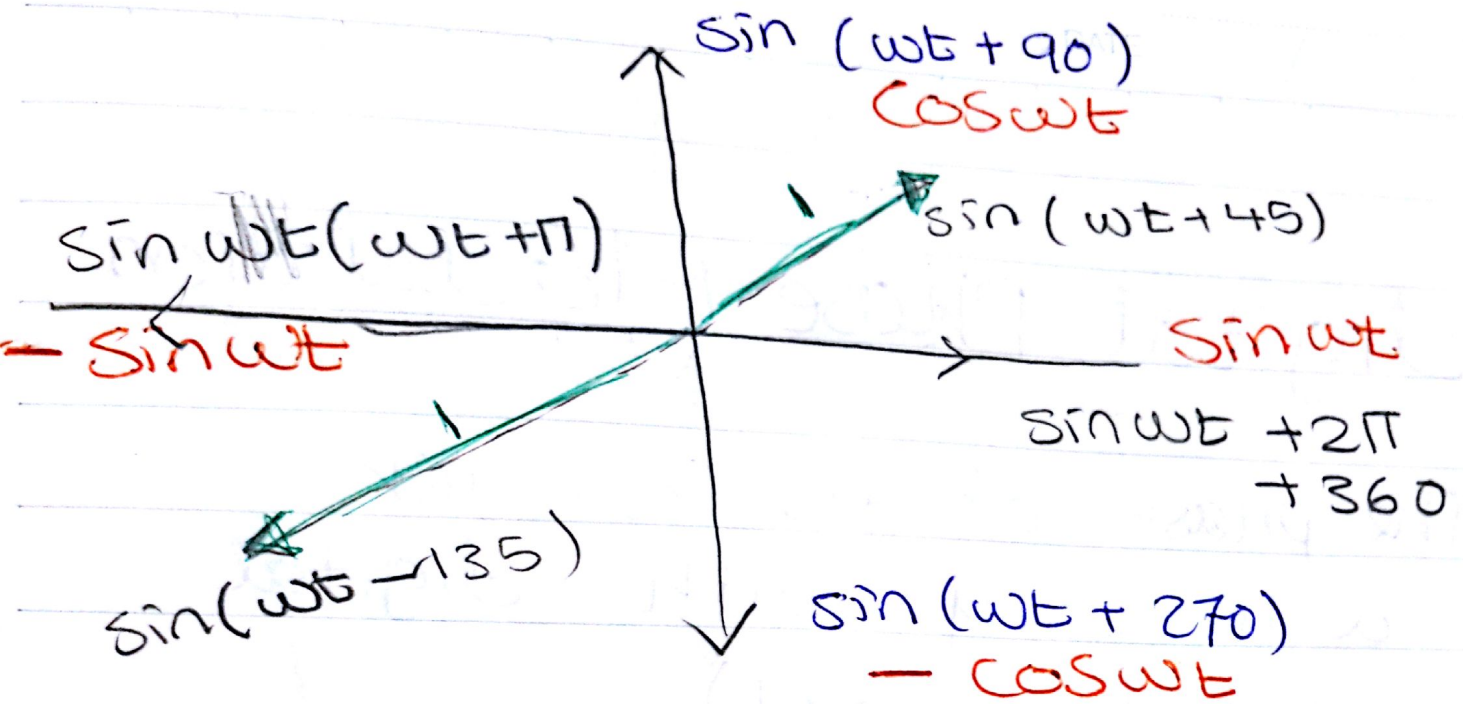 sin (ωt + 90)
cosωt
sin ωt(ωt +π)
sin (ωt+45)
- sinωt
sinωt
sinωt +2π
+ 360
sin(ωt -135)
sin (ωt + 270)
- cosωt